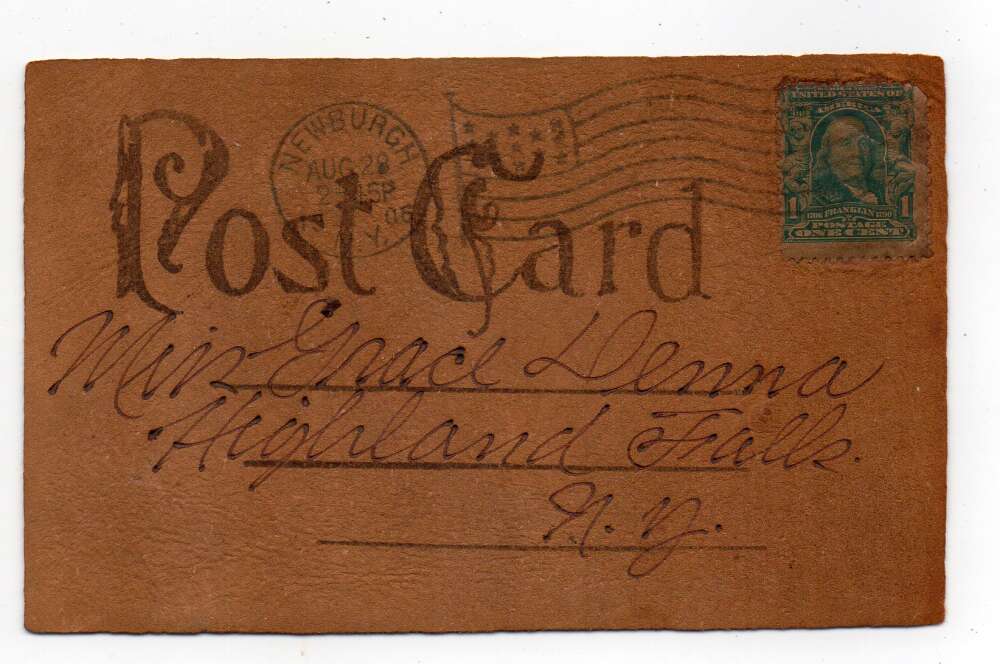 Post Card
NEWBURGH
AUG 28
N.Y.
UNITED STATES OF
AMERICA
1 1706 FRANKLIN 1790 1
POSTAGE
ONE CENT
Miss Grace Denna
Highland Falls.
N. Y.